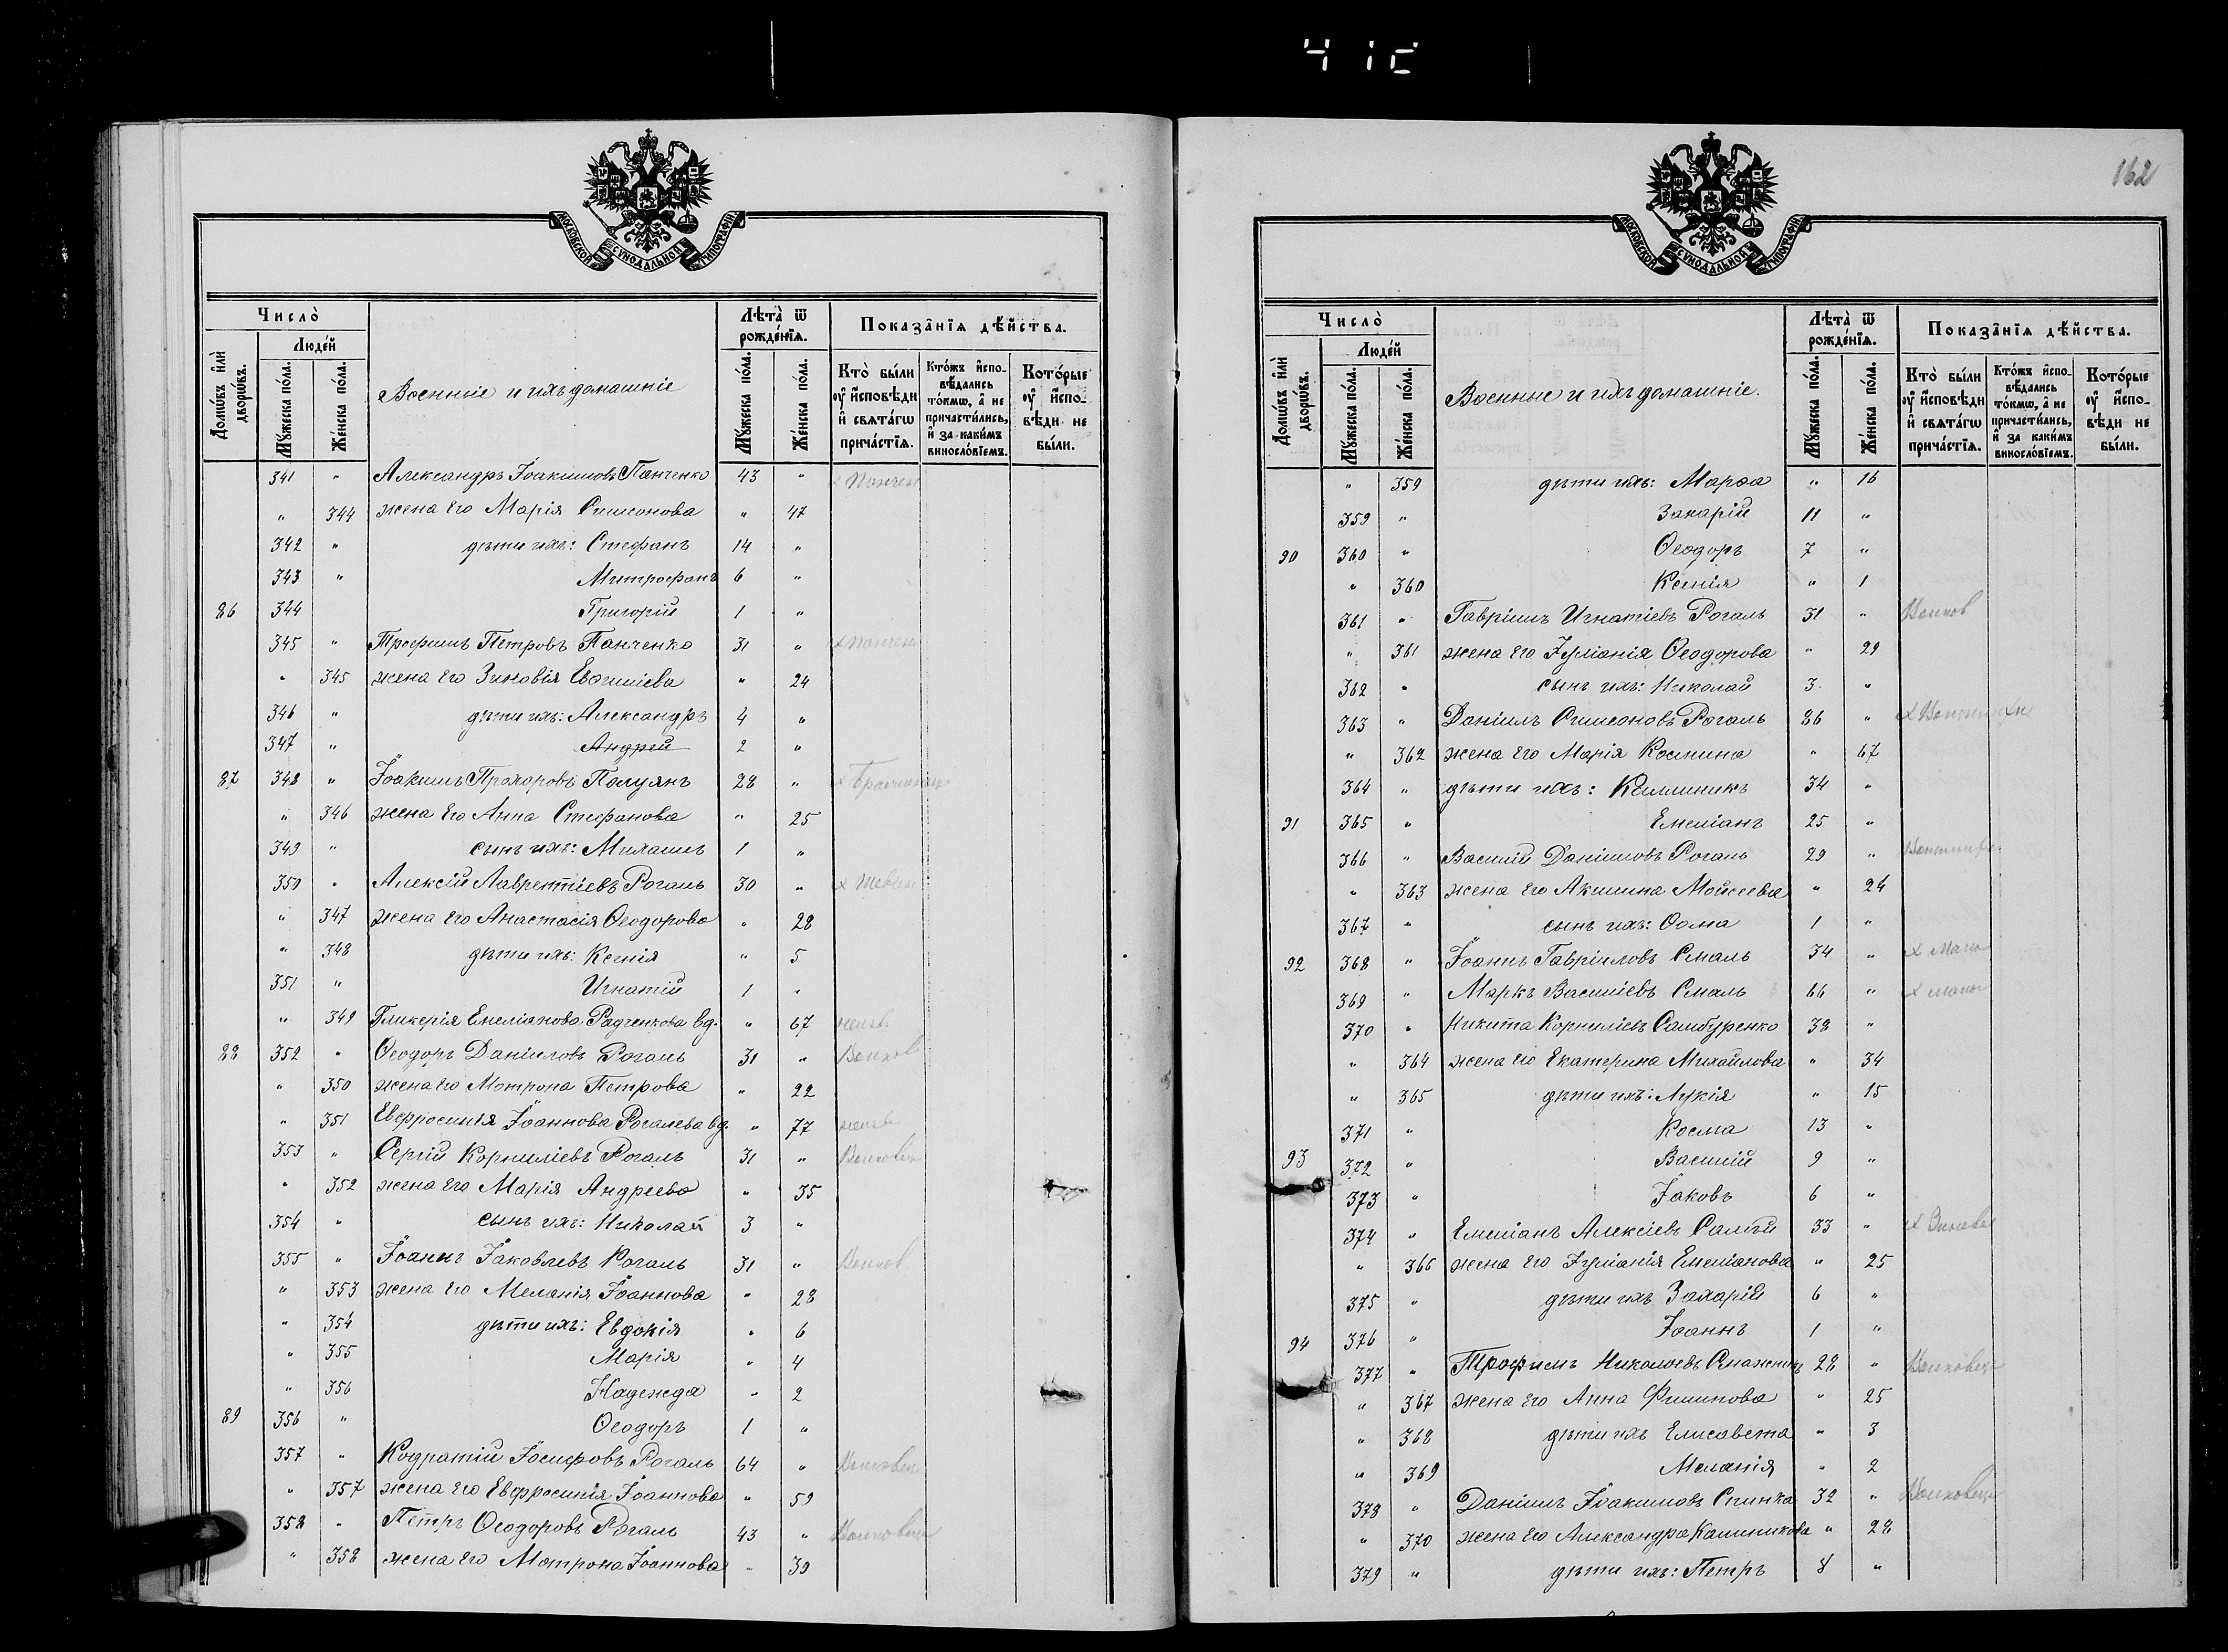 162
МОСКОВСКОЙ СѴНОДАЛЬНОЙ ТИПОГРАФІИ
Число̀
Людє́й
Домѡ́въ и҆лѝ дворѡ́въ.
Мꙋ́жеска по́ла.
Же́нска по́ла.
Военные и ихъ домашніе
Лѣта̀ ѿ рожде́нїѧ.
Мꙋ́жеска по́ла.
Же́нска по́ла.
Показа̑нїѧ дѣ́йства.
Кто̀ бы́ли ᲂу҆ и҆сповѣди и҆ свѧта́гѡ прича́стїѧ.
Кто́жъ и҆спо-вѣ́дались то́кмѡ, а҆ не причасти́лись, и҆ за каки́мъ виносло́вїемъ.
Кото́рые ᲂу҆ и҆спо-вѣди не бы́ли.
341 " Александръ Іоакимовъ Панченко 43 "
" 344 жена его Марія Симеонова " 47
342 " дѣти ихъ: Стефанъ 14 "
343 " Митрофанъ 6 "
86 344 Григорій 1 "
345 " Трофимъ Петровъ Панченко 31 "
" 345 жена его Зиновія Евѳиміева " 24
346 " дѣти ихъ: Александръ 4 "
347 " Андрей 2 "
87 348 " Іоакимъ Прохоровъ Полуянъ 28 "
" 346 жена его Анна Стефанова " 25
349 " сынъ ихъ: Михаилъ 1 "
350 " Алексій Лаврентіевъ Рогаль 30 "
" 347 жена его Анастасія Ѳеодорова " 28
" 348 дѣти ихъ: Ксенія " 5
351 " Игнатій 1 "
" 349 Гликерія Емеліанова Радченкова вд. " 67
88 352 " Ѳеодоръ Даніиловъ Рогаль 31 " Волков
" 350 жена его Мотрона Петрова " 22
" 351 Евфросинія Іоаннова Рогалева вд. " 77
353 " Сергій Корниліевъ Рогаль 31 "
" 352 жена его Марія Андреева " 35
354 " сынъ ихъ: Николай 3 "
355 " Іоаннъ Іаковлевъ Рогаль 31 " Волков
" 353 жена его Меланія Іоаннова " 28
" 354 дѣти ихъ: Евдокія " 6
" 355 Марія " 4
" 356 Надежда " 2
89 356 " Ѳеодоръ 1 "
357 " Кодратій Іосифовъ Рогаль 64 "
" 357 жена его Евфросинія Іоаннова " 59
358 " Петръ Ѳеодоровъ Рогаль 43 "
" 358 жена его Мотрона Іоаннова " 39
МОСКОВСКОЙ СѴНОДАЛЬНОЙ ТИПОГРАФІИ
Число̀
Людє́й
Домѡ́въ и҆лѝ дворѡ́въ.
Мꙋ́жеска по́ла.
Же́нска по́ла.
Военные и ихъ домашніе.
Лѣта̀ ѿ рожде́нїѧ.
Мꙋ́жеска по́ла.
Же́нска по́ла.
Показа̑нїѧ дѣ́йства.
Кто̀ бы́ли ᲂу҆ и҆сповѣди и҆ свѧта́гѡ прича́стїѧ.
Кто́жъ и҆спо-вѣ́дались то́кмѡ, а҆ не причасти́лись, и҆ за каки́мъ виносло́вїемъ.
Кото́рые ᲂу҆ и҆спо-вѣди не бы́ли.
" 359 дѣти ихъ: Марѳа " 16
359 " Захарій 11 "
90 360 " Ѳеодоръ 7 "
" 360 Ксенія " 1
361 " Гавріилъ Игнатіевъ Рогаль 31 " Волков
" 361 жена его Іуліанія Ѳеодорова " 29
362 " сынъ ихъ: Николай 3 "
363 " Даніилъ Симеоновъ Рогаль 86 "
" 362 жена его Марія Космина " 67
364 " дѣти ихъ: Каллиникъ 34 "
91 365 " Емеліанъ 25 "
366 " Василій Даніиловъ Рогаль 29 "
" 363 жена его Акилина Моисеева " 24
367 " сынъ ихъ: Ѳома 1 "
92 368 " Іоаннъ Гавріиловъ Смаль 34 "
369 " Маркъ Василіевъ Смаль 66 "
370 " Никита Корниліевъ Самбуренко 38 "
" 364 жена его Екатерина Михайлова " 34
" 365 дѣти ихъ: Лукія " 15
371 " Косма 13 "
93 372 " Василій 9 "
373 " Іаковъ 6 "
374 " Емеліанъ Алексіевъ Салтій 33 "
" 366 жена его Іуліанія Емеліанова " 25
375 " дѣти ихъ Захарій 6 "
94 376 " Іоаннъ 1 "
377 " Трофимъ Николаевъ 28 "
" 367 жена его Анна Филипова " 25
" 368 дѣти ихъ Елисавета " 3
" 369 Меланія " 2
378 " Даніилъ Іоакимовъ Спинка 32 "
" 370 жена его Александра Калиникова " 28
379 " дѣти ихъ: Петръ 8 "